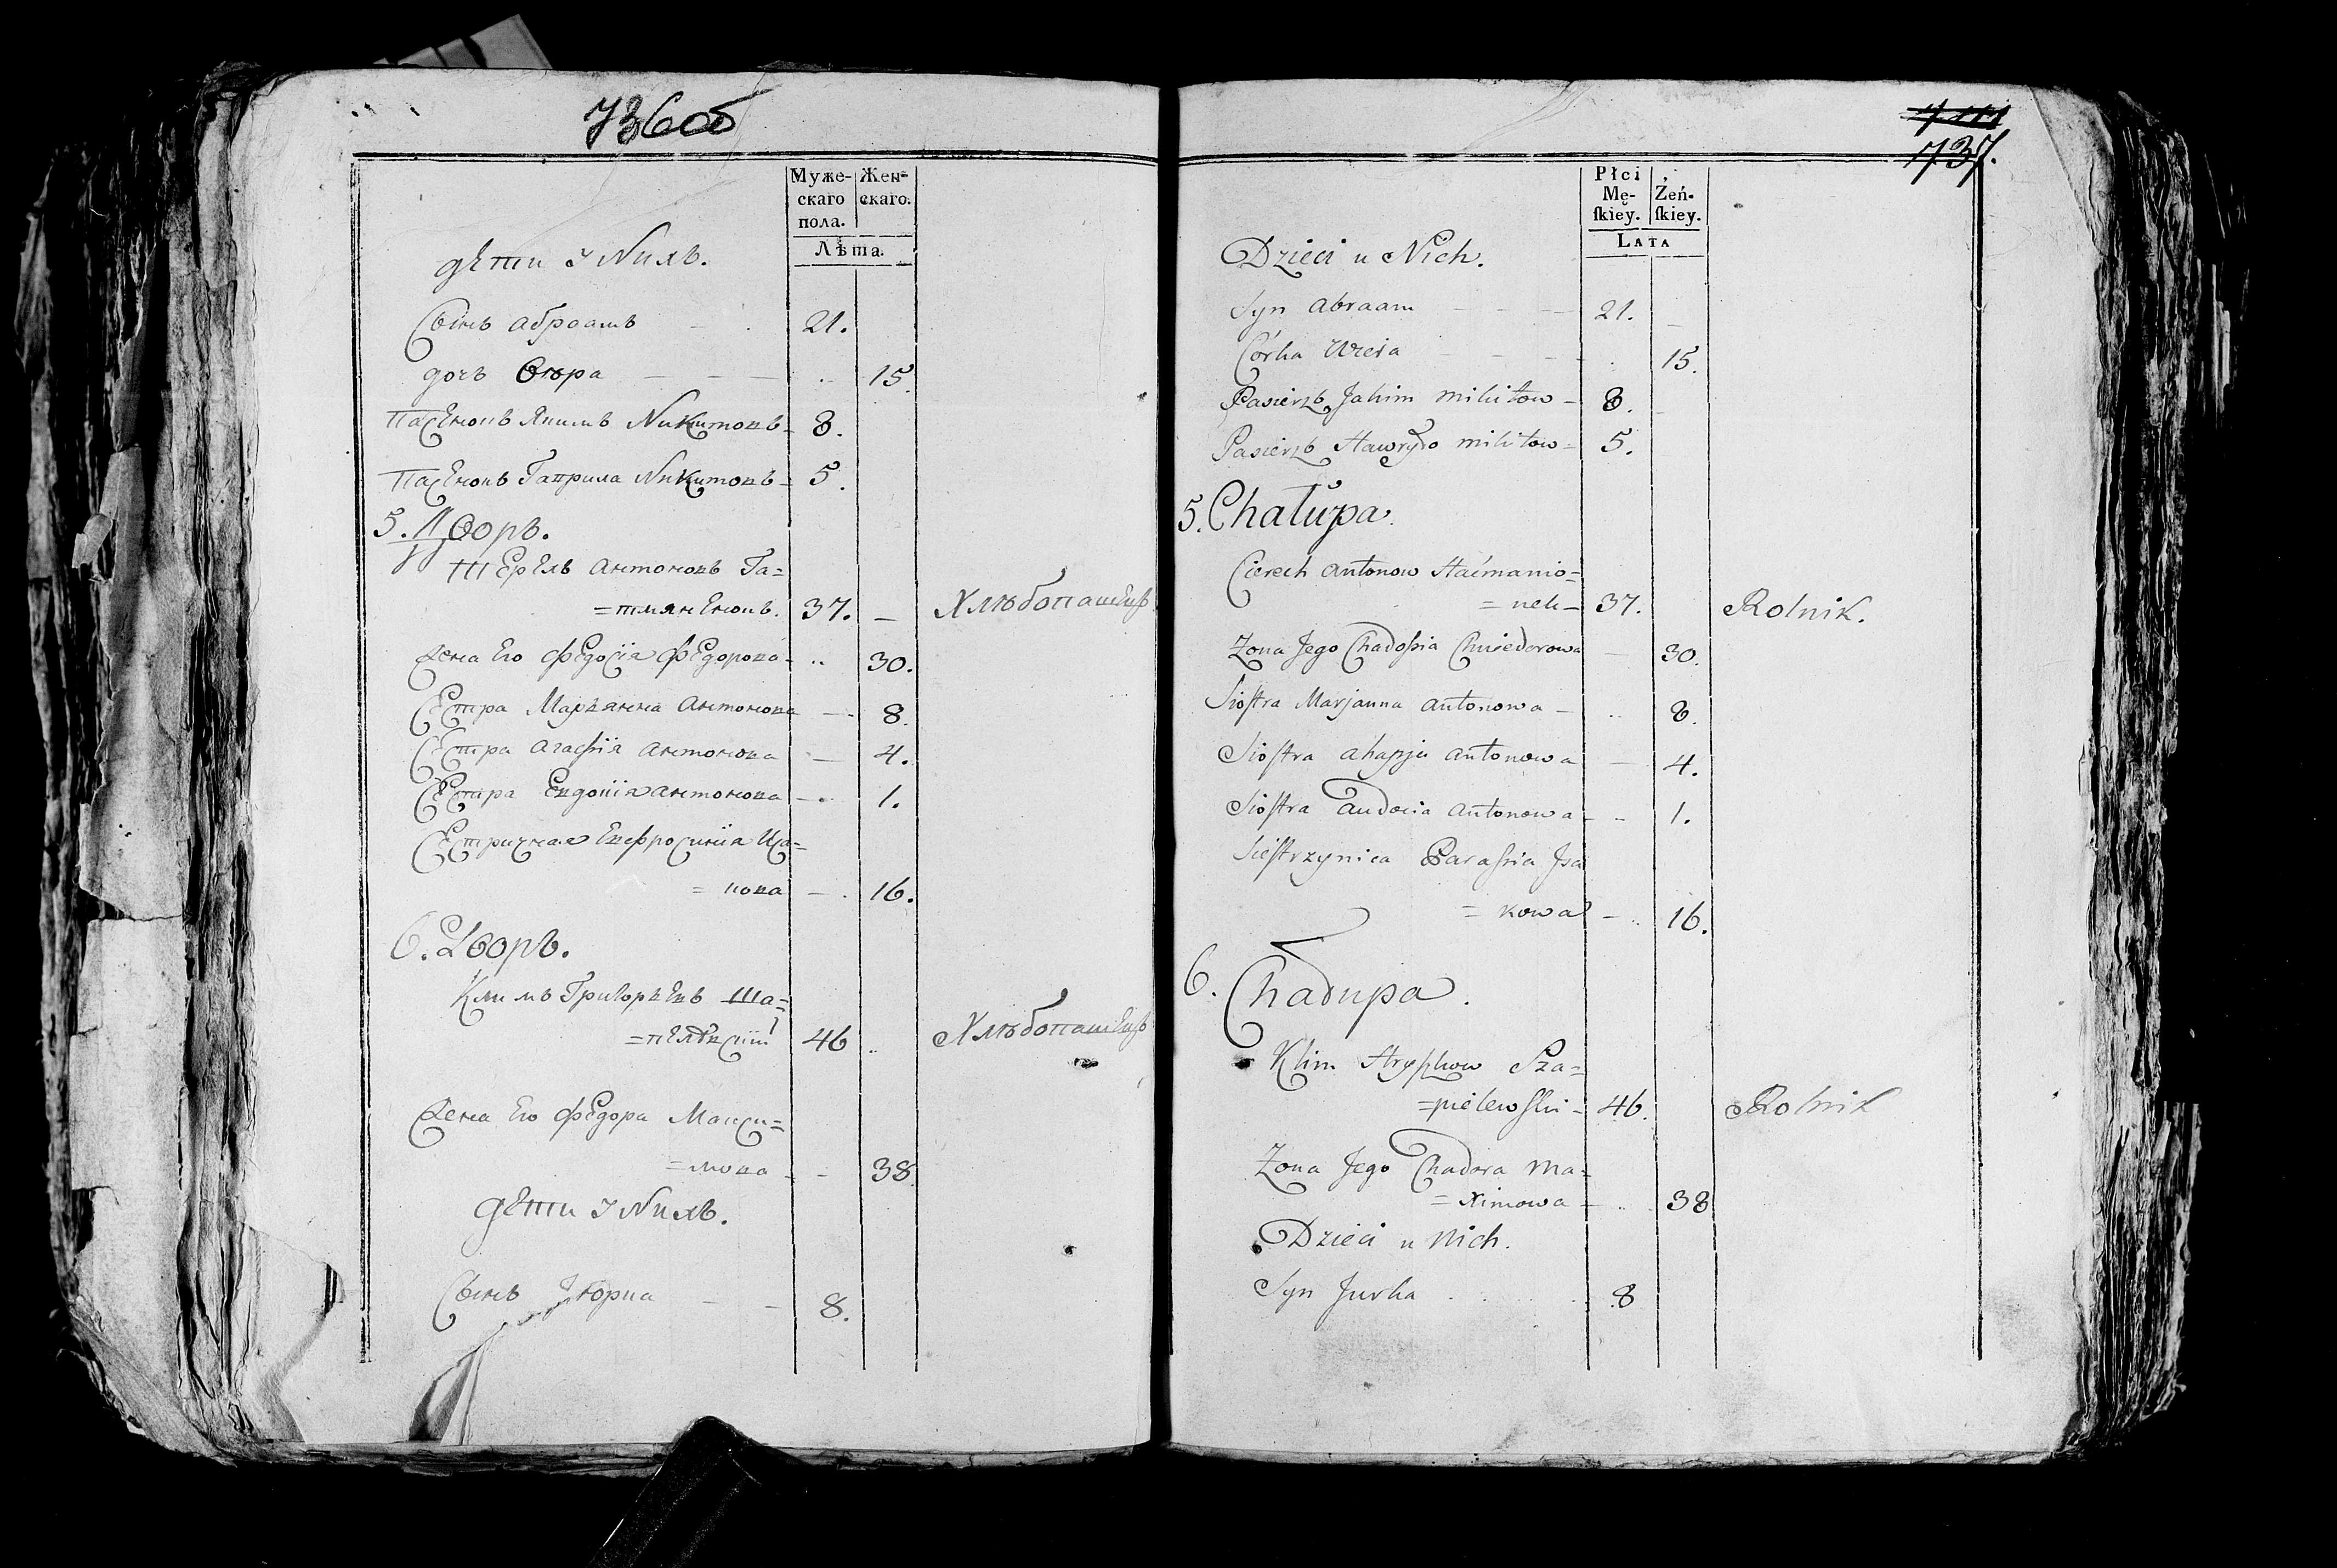 736об
Муже-
скаго
пола.
Жен-
скаго.
Лѣта.
дети У Nихъ.
Сынъ аброамъ 21.
дочь 15
Пасенокъ Якимъ Nикитовъ 8.
Пасенокъ Гаприла Nикитовъ 5.
5. Дворъ.
Терехъ Антоновъ Га=
=тманенокъ. 37. Хлѣбопашецъ
Жена Его Федосія Федорова 30.
Сестра Марьянна Антонова 8.
Сестра Агафія Антонова 4.
Сестра Евдокія Антонова 1.
Сестричная Евфросинія Иса=
=кова 16.
6. Дворъ.
Климъ Григорьевъ Ша=
=пелевскій 46 Хлѣбопашецъ
Жена Его Федора Макси=
=мова 38.
дети У Nихъ.
Сынъ Юрка 8.
737.
Płci
Mę-
ſkiey.
Żeń-
ſkiey.
LATA
Dzieci u Nich.
Syn Abraam 21.
Córka 15.
Pasierzb Jakim Mikitow 8.
Pasierzb Hawryło Mikitow 5.
5. Chałupa.
Cierech Antonow Haćmanio=
=nek 37. Rolnik.
Żona Jego Chadoſsia Chwiedorowa 30.
Sioſtra Marjanna Antonowa 8.
Sioſtra Ahapja Antonowa 4.
Sioſtra Audocia Antonowa 1.
Sieſtrzynica Paraſsia Jsa
=kowa 16.
6. Chałupa.
Klim Sza=
=pielewſki 46. Rolnik
Żona Jego Chadora Ma=
=ximowa 38
Dzieci u Nich.
Syn Jurka 8